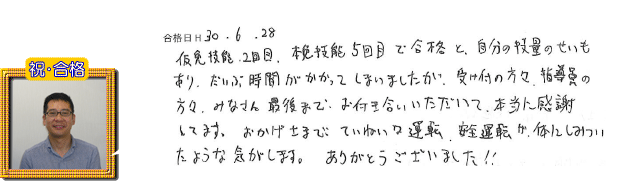 祝・合格
合格日H30.6.28
仮免技能.2回目、本免技能5回目で合格と、自分の技量のせいも
あり、だいぶ時間がかかってしまいましたが、受け付の方々、指導員の
方々、みなさん最後まで、お付き合いいただいて、本当に感謝
してます。おかげさまで、ていねいな運転、安全運転が、体にしみつい
たような気がします。ありがとうございました!!